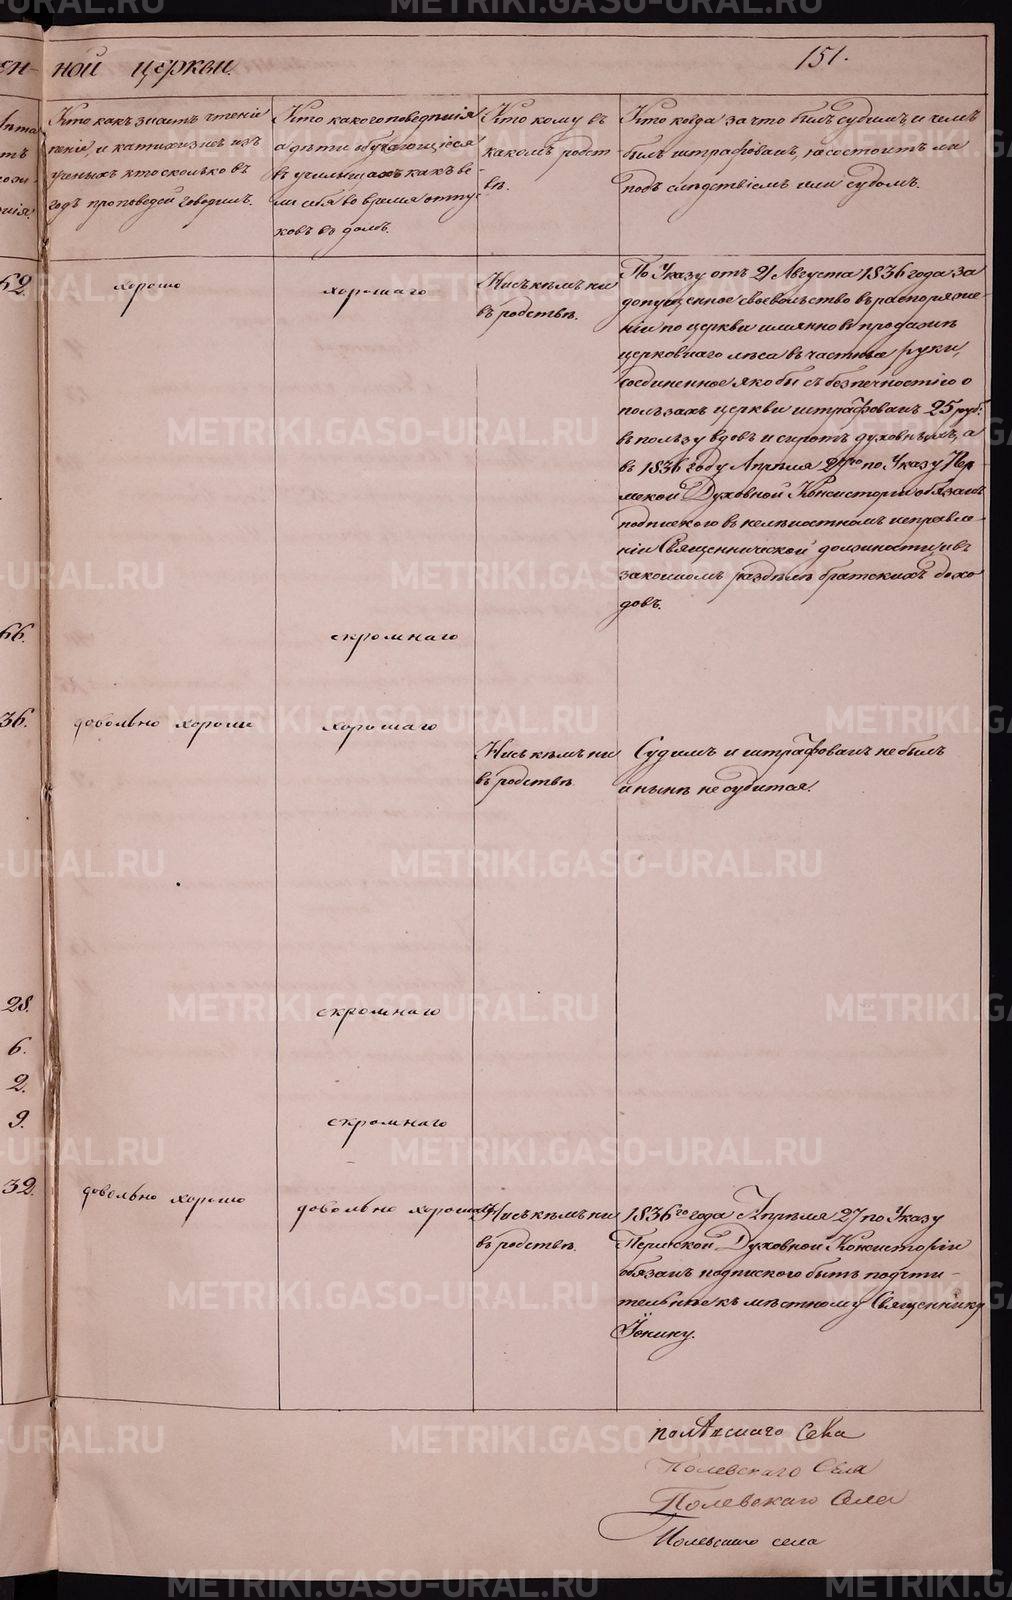 ной церкви.
151.
Кто какъ знаетъ чтеніе
пеніе, и катихизисъ изъ
ученыхъ кто сколько въ
годъ проповедей говоритъ.
Кто какого поведенія
а дѣти обучающіеся
въ училищахъ какъ ве-
ли себя во время отпу-
ковъ въ домъ.
Кто кому въ
какомъ родст
вѣ.
Кто когда за что былъ судимъ, и чемъ
былъ штрафованъ, не состоитъ ли
подъ слѣдствіемъ или судомъ.
62.
хорошо
хорошаго
Ни съ кѣмъ ни
въ родствѣ.
По Указу отъ 21 Августа 1836 года за
допущенное своевольство въ распоряже-
ніи по церкви имянно въ продажѣ
церковнаго лѣса въ частныя руки,
соединенное якобы съ безпечностію о
пользахъ церкви штрафованъ 25 руб:
въ пользу вдовъ и сиротъ духовныхъ, а
въ 1836 году Апрѣля 27го по Указу Пер
мской Духовной Консисторіи обязанъ
подпискою въ неленостномъ исправле-
ніи Священнической должности и въ
законномъ раздѣлѣ братскихъ дохо
довъ.
66.
скромнаго
36.
довольно хорошо
хорошаго
Ни съ кѣмъ ни
въ родствѣ
Судимъ и штрафованъ не былъ
и нынѣ не судится.
28.
скромнаго
6.
2.
9.
скромнаго
32.
довольно хорошо
довольно хорошаго
Ни съ кѣмъ ни
въ родствѣ.
1836го года Апрѣля 27 по Указу
Пермской Духовной Консисторіи
обязанъ подпискою быть почти-
тельнѣе къ мѣстному Священнику
Іонину.
полевскаго села
Полевскаго Села
Полевскаго Села
Полевскаго села
METRIKI.GASO-URAL.RU